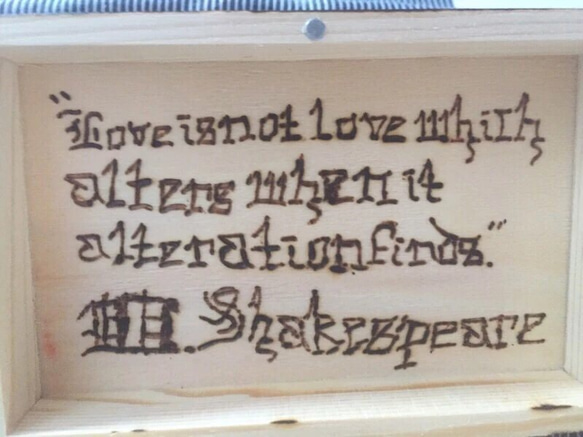 "Love is not love which
alters when it
alteration finds."
W. Shakespeare